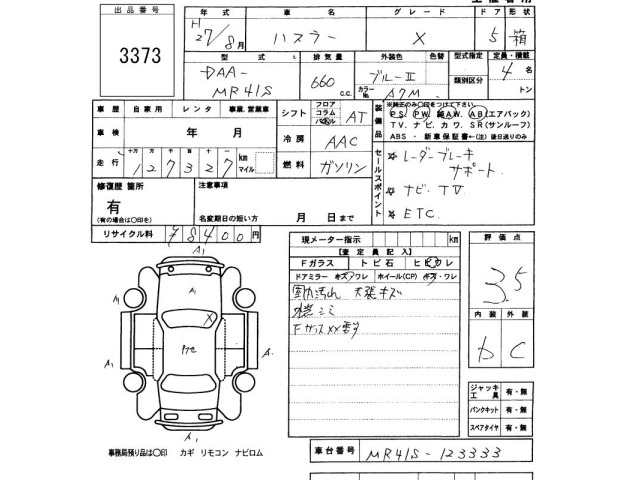 出品番号
3373
年式 車名 グレード ドア 形状
H27/8月 ハスラー X 5 箱
型式 排気量 外装色 色替 型式指定 定員・積載
DAA-MR41S 660 c.c. ブルーⅡ 類別区分 4名
カラーNo. A7M トン
車歴 自家用 レンタ 事業、営業車
シフト フロア コラム パネル AT
装備品
※純正のみ○印をつけて下さい
PS PW 純AW. AB(エアバック)
TV. ナビ. カワ. SR(サンルーフ)
ABS・新車保証書←(注)後日送りのみ
車検 年 月
冷房 AAC
走行 十万 万 千 百 十 一 km マイル
127327
燃料 ガソリン
セールスポイント
☆ レーダーブレーキ
サポート
☆ ナビ. TV.
☆ ETC.
修復歴 箇所
有
(有の場合は○印を)
注意事項
名変期日の短い方 月 日まで
リサイクル料 ¥8400円
現メーター指示 km
【査定員記入】
Fガラス トビ石 ヒビワレ
ドアミラー キズ・ワレ ホイール(CP) キズ・ワレ
キズ
評価点
3.5
内装 外装
b C
A1
A1
X
A1
A1
ジャッキ工具 有・無
パンクキット 有・無
スペアタイヤ 有・無
車台番号 MR41S-123333
事務局残り品は○印 カギ リモコン ナビロム